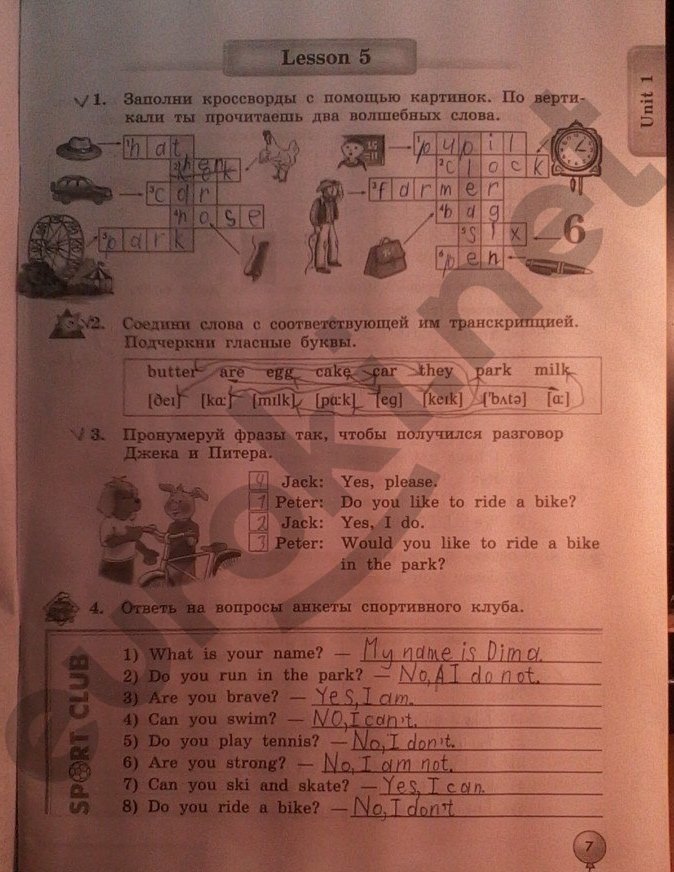 Lesson 5
Unit 1
1. Заполни кроссворды с помощью картинок. По верти-
кали ты прочитаешь два волшебных слова.
1hat
2hen
3car
4hose
5park
1pupil
2clock
3farmer
4bag
5six
6
6pen
2. Соедини слова с соответствующей им транскрипцией.
Подчеркни гласные буквы.
butter are egg cake car they park milk
[ðeɪ] [kɑː] [mɪlk] [pɑːk] [eg] [keɪk] ['bʌtə] [ɑː]
3. Пронумеруй фразы так, чтобы получился разговор
Джека и Питера.
4 Jack: Yes, please.
1 Peter: Do you like to ride a bike?
2 Jack: Yes, I do.
3 Peter: Would you like to ride a bike
in the park?
4. Ответь на вопросы анкеты спортивного клуба.
SPORT CLUB
1) What is your name? — My name is Dima.
2) Do you run in the park? — No, I do not.
3) Are you brave? — Yes, I am.
4) Can you swim? — NO, I can't.
5) Do you play tennis? — No, I don't.
6) Are you strong? — No, I am not.
7) Can you ski and skate? — Yes, I can.
8) Do you ride a bike? — No, I don't
7
euroki.net